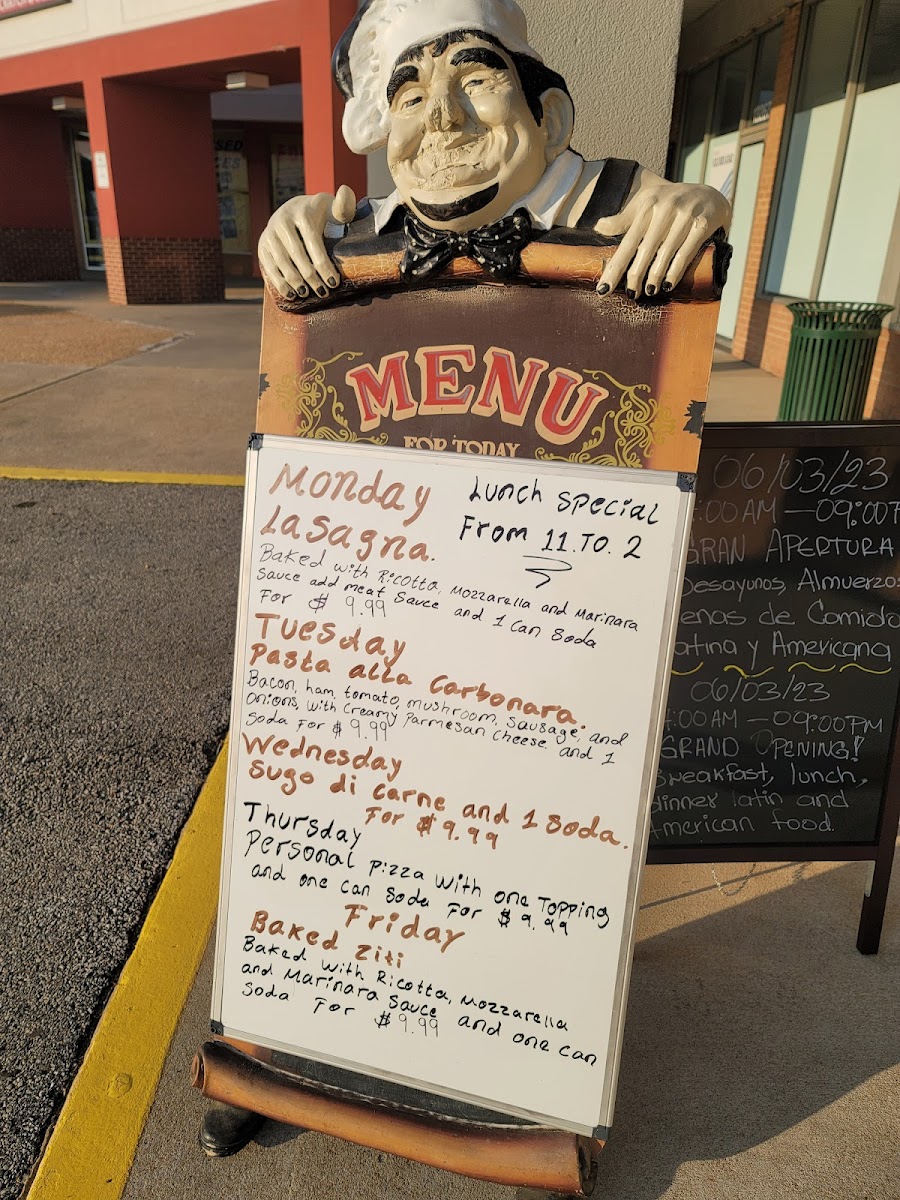 MENU
FOR TODAY
Monday
Lunch Special
From 11.TO.2
Lasagna.
Baked with Ricotta, Mozzarella and Marinara
Sauce add meat Sauce and 1 Can Soda
For $ 9.99
Tuesday
Pasta alla Carbonara.
Bacon, ham, tomato, mushroom, sausage, and
Onions, with Creamy Parmesan Cheese and 1
Soda For $ 9.99
Wednesday
Sugo di Carne and 1 Soda.
For $9.99
Thursday
Personal pizza with one Topping
and one can Soda For $9.99
Friday
Baked Ziti
Baked with Ricotta, Mozzarella
and Marinara Sauce and one can
Soda For $9.99
06/03/23
:00 AM — 09:00P
GRAN APERTURA
Desayunos, Almuerzos
enas de Comida
atina y Americana
06/03/23
:00AM — 09:00PM
GRAND OPENING!
Breakfast, lunch,
dinner latin and
American food.